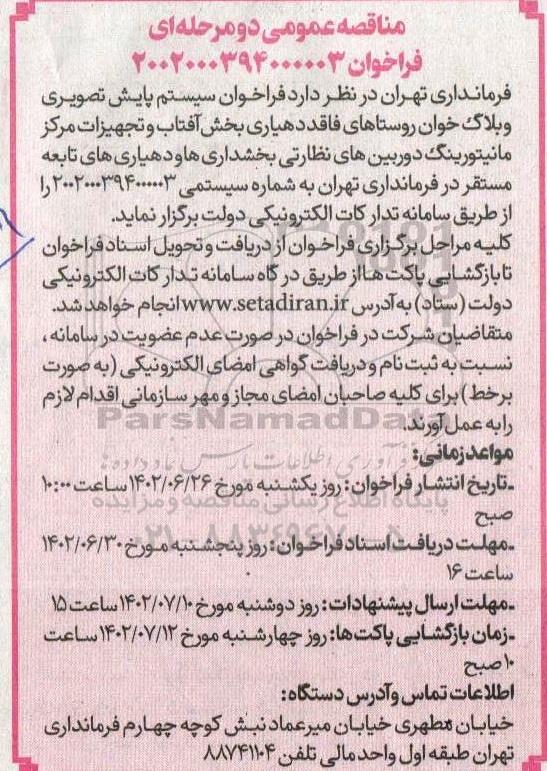 مناقصه عمومی دو مرحله‌ای
فراخوان ۲۰۰۲۰۰۰۳۹۴۰۰۰۰۰۳
فرمانداری تهران در نظر دارد فراخوان سیستم پایش تصویری
و پلاک خوان روستاهای فاقد دهیاری بخش آفتاب و تجهیزات مرکز
مانیتورینگ دوربین های نظارتی بخشداری ها و دهیاری های تابعه
مستقر در فرمانداری تهران به شماره سیستمی ۲۰۰۲۰۰۰۳۹۴۰۰۰۰۰۳ را
از طریق سامانه تدارکات الکترونیکی دولت برگزار نماید.
کلیه مراحل برگزاری فراخوان از دریافت و تحویل اسناد فراخوان
تا بازگشایی پاکت ها از طریق درگاه سامانه تدارکات الکترونیکی
دولت (ستاد) به آدرس www.setadiran.ir انجام خواهد شد.
متقاضیان شرکت در فراخوان در صورت عدم عضویت در سامانه ،
نسبت به ثبت نام و دریافت گواهی امضای الکترونیکی (به صورت
برخط) برای کلیه صاحبان امضای مجاز و مهر سازمانی اقدام لازم
را به عمل آورند.
ParsNamadData
مواعد زمانی:
فرآوری اطلاعات پارس نماد داده ها
-تاریخ انتشار فراخوان: روز یکشنبه مورخ ۱۴۰۲/۰۶/۲۶ ساعت ۱۰:۰۰
صبح
پایگاه اطلاع رسانی مناقصه و مزایده
-مهلت دریافت اسناد فراخوان: روز پنجشنبه مورخ ۱۴۰۲/۰۶/۳۰
۰۲۱-۸۸۳۴۹۶۷۰-۵
ساعت ۱۶
-مهلت ارسال پیشنهادات: روز دوشنبه مورخ ۱۴۰۲/۰۷/۱۰ ساعت ۱۵
-زمان بازگشایی پاکت ها: روز چهارشنبه مورخ ۱۴۰۲/۰۷/۱۲ ساعت
۱۰ صبح
اطلاعات تماس و آدرس دستگاه:
خیابان مطهری خیابان میرعماد نبش کوچه چهارم فرمانداری
تهران طبقه اول واحد مالی تلفن ۸۸۷۴۱۱۰۴